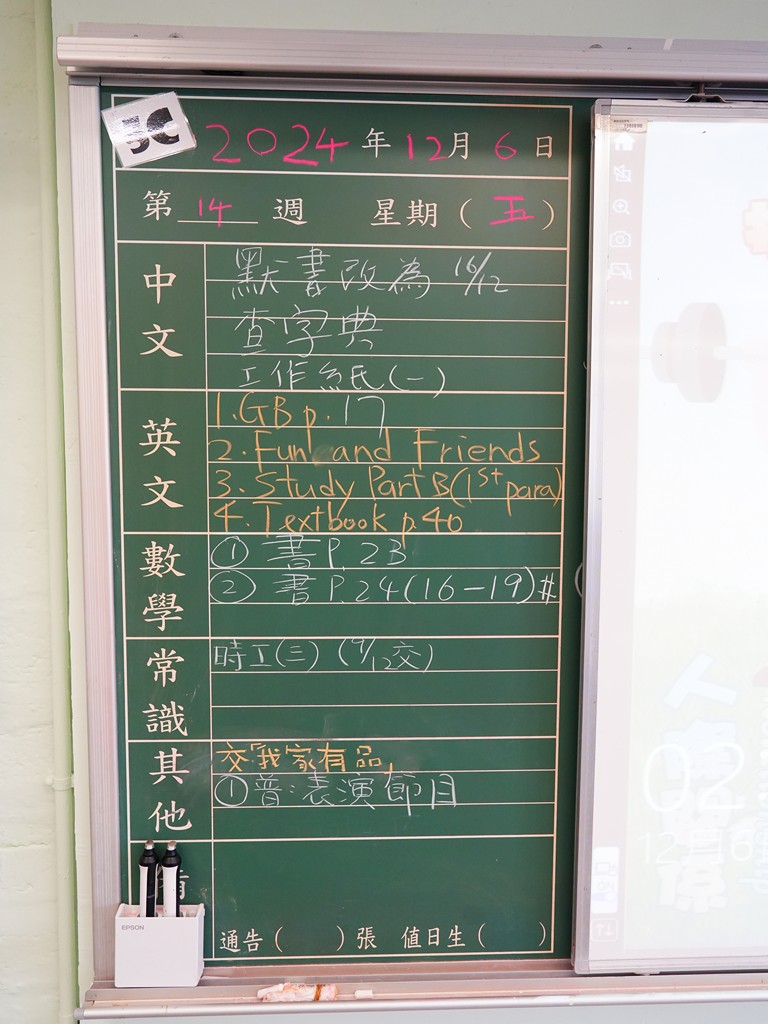 5C
2024年12月6日
第14週 星期(五)
中文
默書改為16/12
查字典
工作紙(一)
英文
1.GB p.17
2.Fun and Friends
3.Study Part B(1st para)
4.Textbook p.40
數學
① 書P.23
② 書P.24(16-19)#
常識
時工(三) (9/12交)
其他
交「我家有品」
①普:表演節目
EPSON
通告( )張 值日生( )
02
12月6